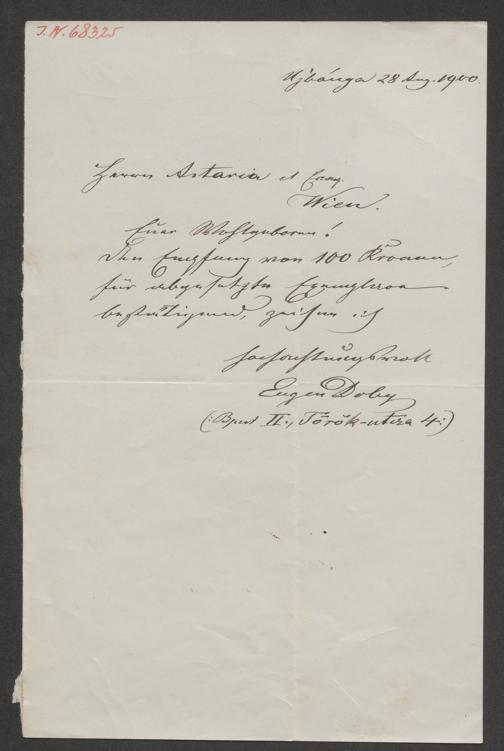 J.N. 68325
Ujbánya 28 Aug. 1900.
Herrn Artaria et Comp.
Wien.
Euer Wohlgeboren!
Den Empfang von 100 Kronen,
für abgesetzte Exemplare
bestätigend, zeichne ich
hochachtungsvoll
Eugen Doby
(: Bpest II., Török-utcza 4 :)